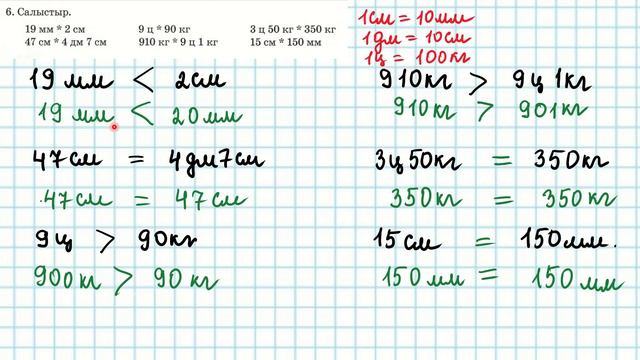 6. Салыстыр.
19 мм * 2 см 9 ц * 90 кг 3 ц 50 кг * 350 кг
47 см * 4 дм 7 см 910 кг * 9 ц 1 кг 15 см * 150 мм
1см = 10мм
1дм = 10см
1ц = 100кг
19 мм < 2см
19 мм < 20мм
47см = 4дм7см
47см = 47см
9ц > 90кг
900кг > 90кг
910кг > 9ц1кг
910кг > 901кг
3ц50кг = 350кг
350кг = 350кг
15см = 150мм.
150мм = 150мм